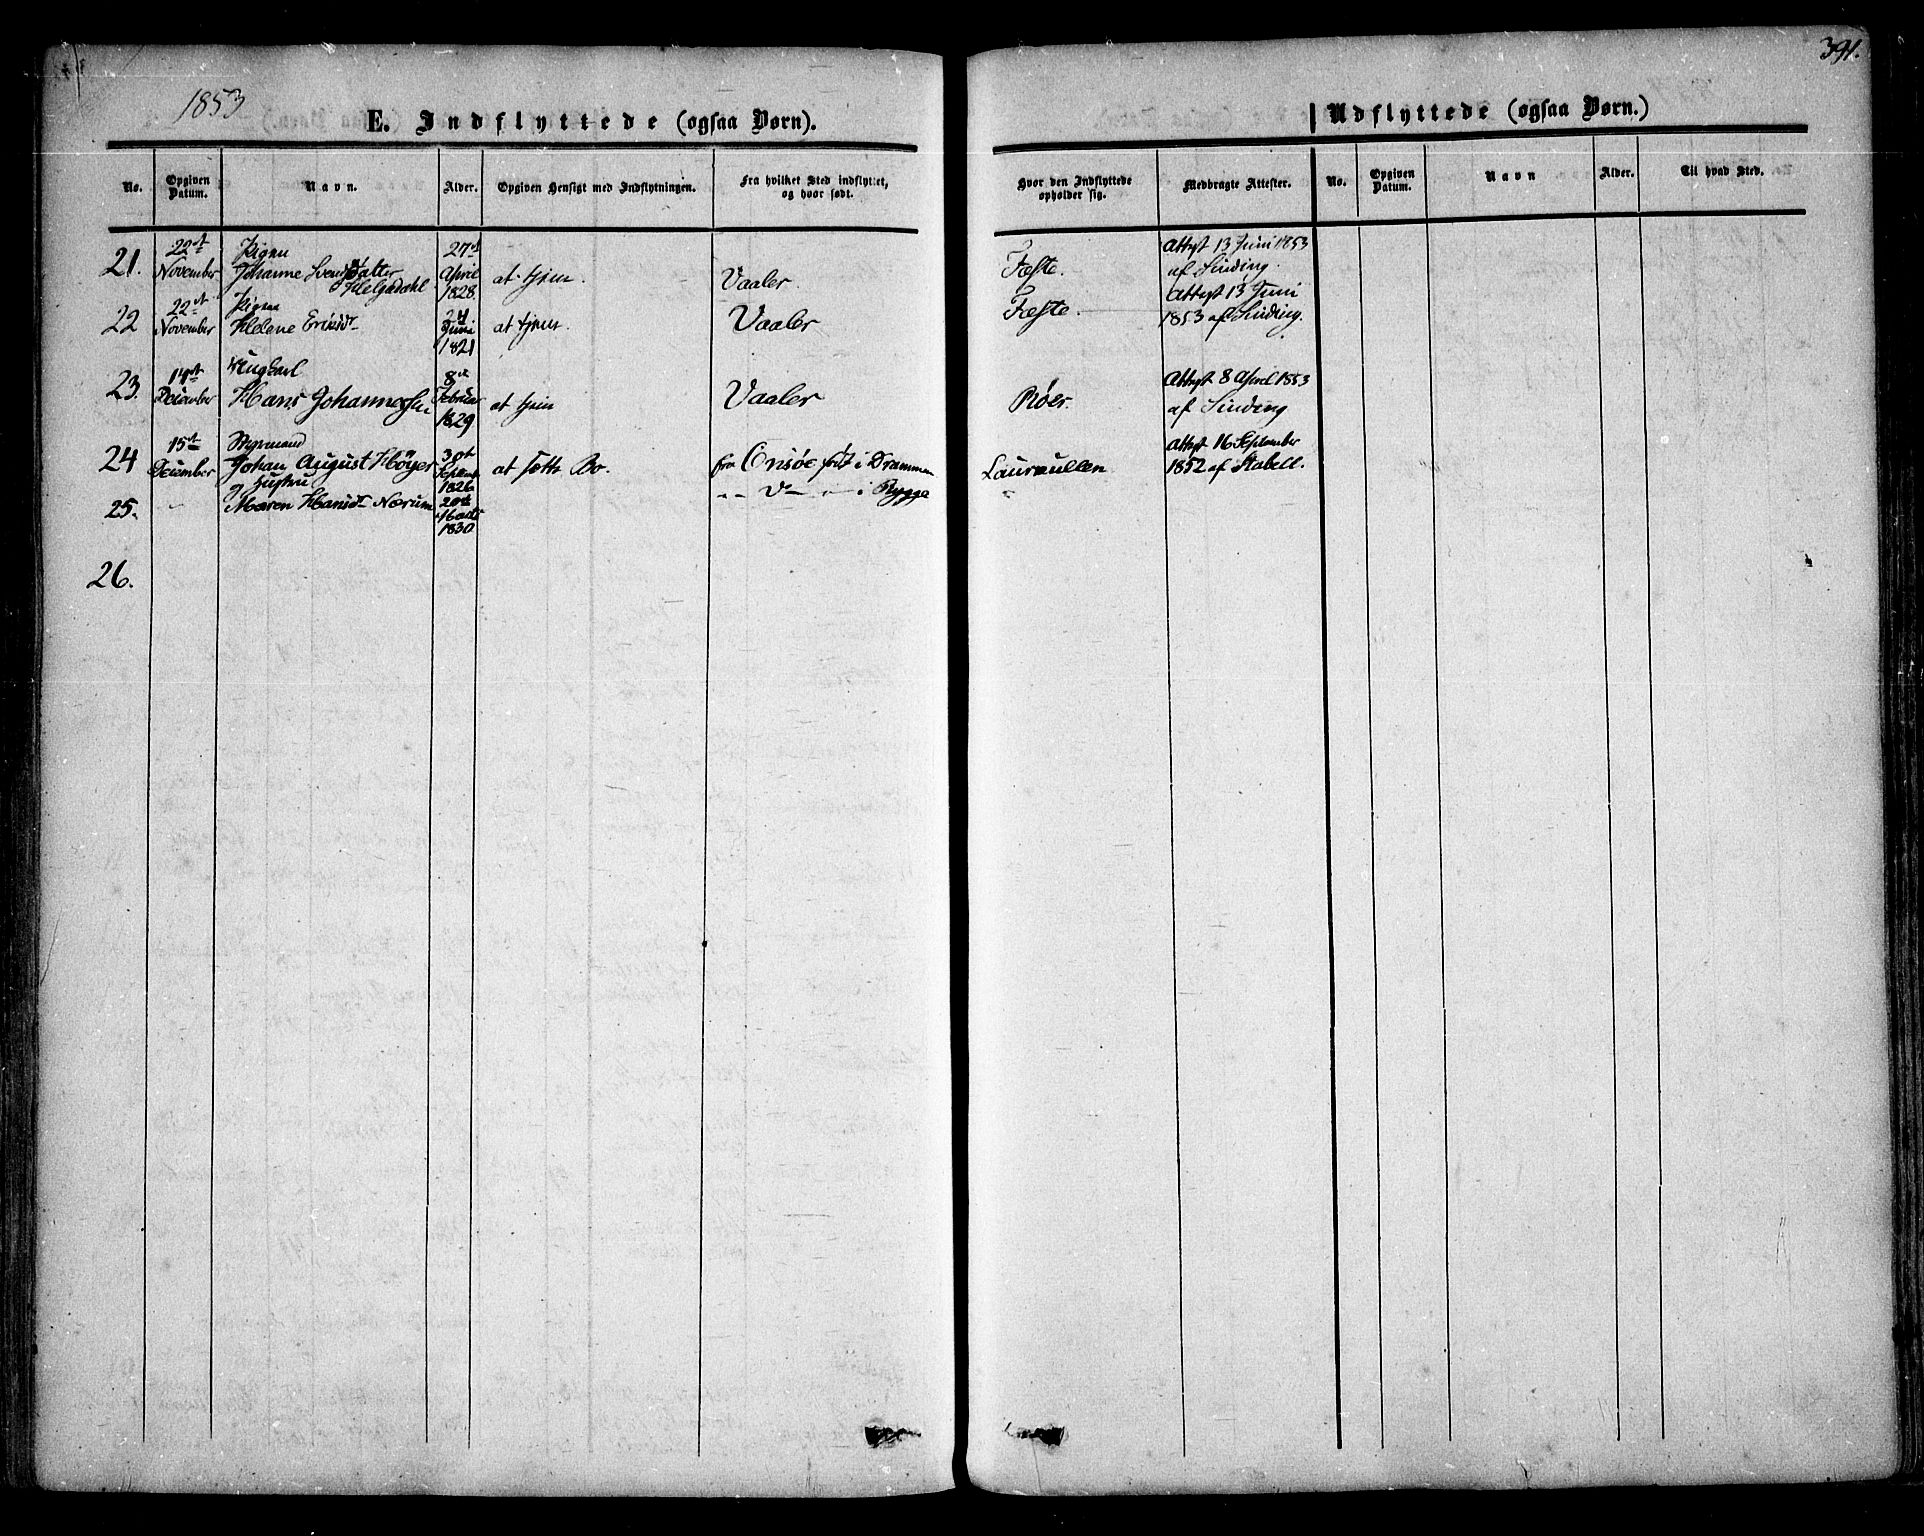 391.
1853
E. Indflyttede (ogsaa Børn).
Udflyttede (ogsaa Børn.)
No. Opgiven Datum. Navn. Alder. Opgiven Hensigt med Indflytningen. Fra hvilket Sted indflyttet, og hvor født. Hvor den Indflyttede opholder sig. Medbragte Attester. No. Opgiven Datum. Navn Alder. Til hvad Sted.
22de Pigen 27de Attest 13 Juni 1853
21. November Johanne Svendsdatter April at tjene. Vaaler. Fæste. af Sinding.
Helgedahl 1828.
22de Pigen 24 Attest 13 Juni
22 November Helene Eriksdr Juni at tjene. Vaaler Fæste. 1853 af Sinding.
1821
14de Ungkarl 8de Attest 8 April 1853
23. December Hans Johannessen Februar at tjene Vaaler Röer. af Sinding
1829
15de Styrmand 30te Attest 16 September
24 December Johan August Höyer Septemb at sætte Bo. fra Onsöe født i Drammen Laurkullen 1852 af Stabell.
og Hustru 1826
25. - Maren Hansdr Nærum 20de " - D - " - i Rygge "
1830
26.